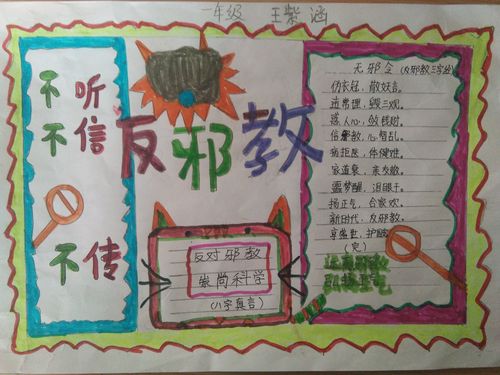 一年级 王紫涵
不听
不信
不传
反邪教
反对邪教
崇尚科学
(八字真言)
无邪令(反邪教三字经)
伪衣冠，散妖言。
逆常理，毁三观。
惑人心，敛钱财。
信谗教，心智乱。
病拒医，体健难。
家道衰，亲友散。
噩梦醒，泪眼干。
扬正气，合家欢。
新时代，反邪教。
享盛世，
(完)
远离邪教